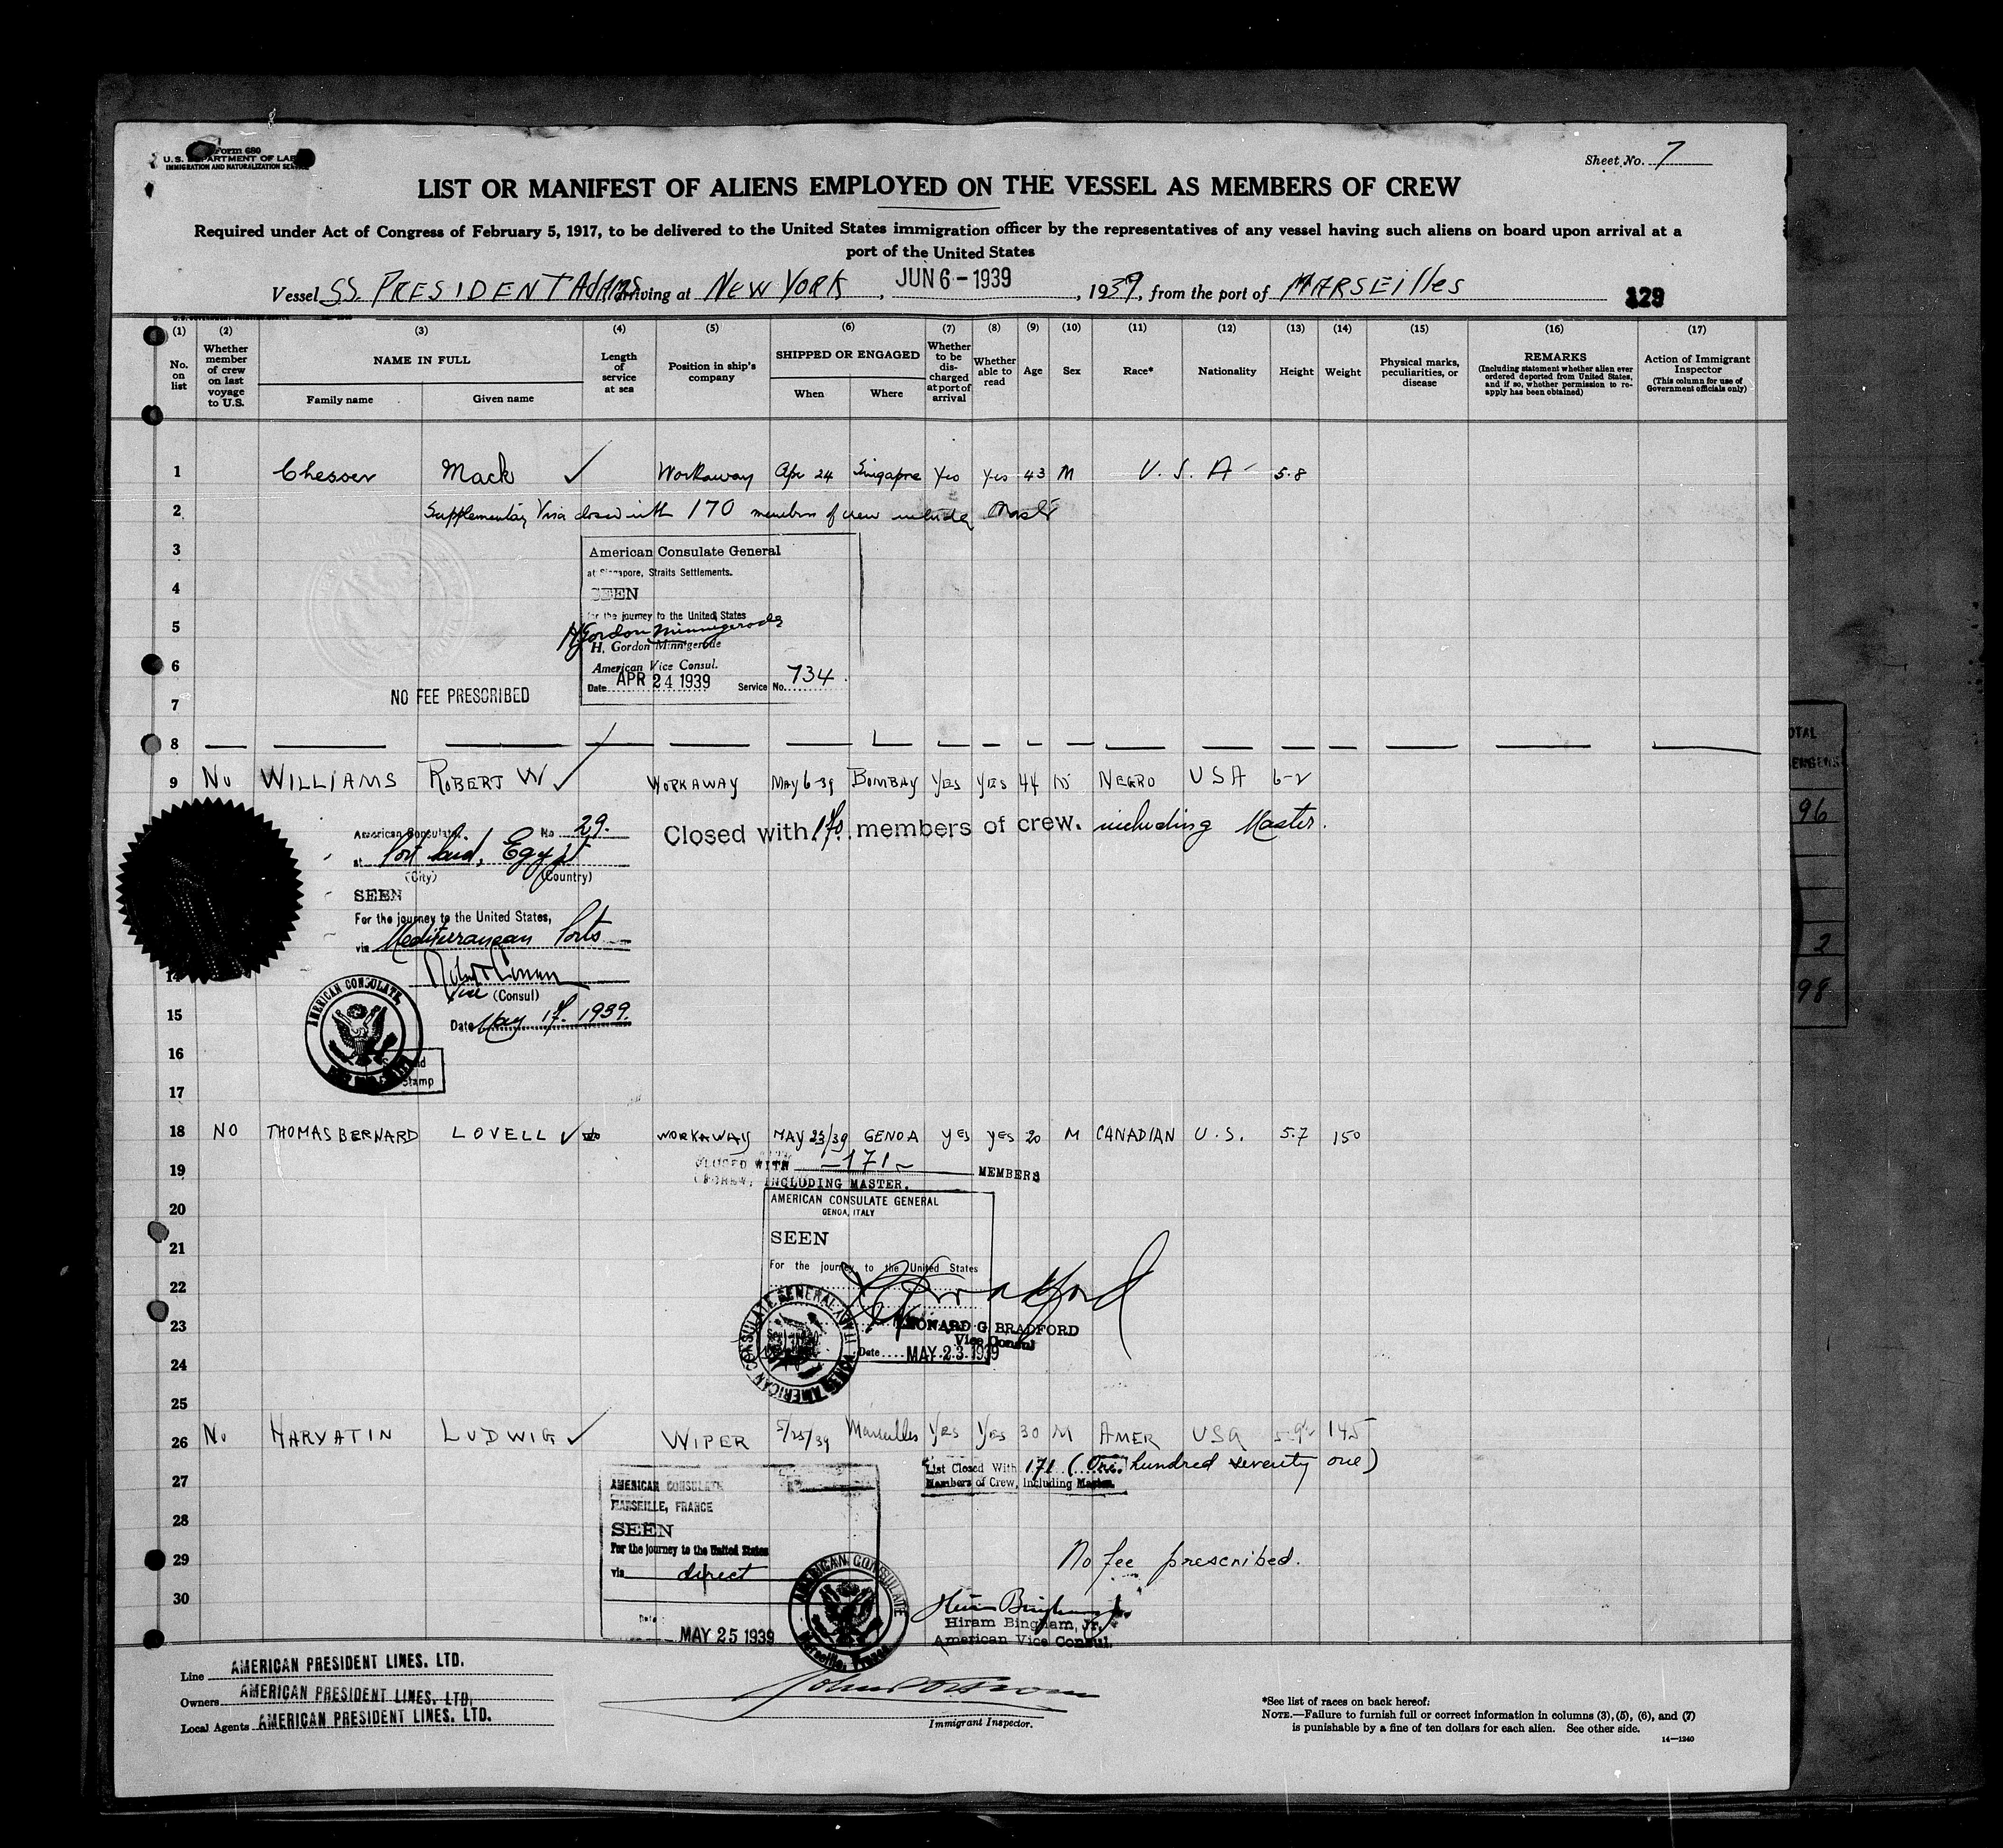 Form 680
U.S. DEPARTMENT OF LAB
IMMIGRATION AND NATURALIZATION SER
Sheet No. 7
LIST OR MANIFEST OF ALIENS EMPLOYED ON THE VESSEL AS MEMBERS OF CREW
Required under Act of Congress of February 5, 1917, to be delivered to the United States immigration officer by the representatives of any vessel having such aliens on board upon arrival at a
port of the United States
Vessel SS. PRESIDENT AdAMS arriving at NEW YORK, JUN 6 - 1939, 1939, from the port of MARSEILLES 129
(1) (2) (3) (4) (5) (6) (7) (8) (9) (10) (11) (12) (13) (14) (15) (16) (17)
No. on list
Whether member of crew on last voyage to U.S.
NAME IN FULL
Family name Given name
Length of service at sea
Position in ship's company
SHIPPED OR ENGAGED
When Where
Whether to be discharged at port of arrival
Whether able to read
Age
Sex
Race*
Nationality
Height
Weight
Physical marks, peculiarities, or disease
REMARKS
(Including statement whether alien ever ordered deported from United States, and if so, whether permission to reapply has been obtained)
Action of Immigrant Inspector
(This column for use of Government officials only)
1 Chesser Mack ✓ Workaway Apr 24 Singapore Yes Yes 43 M U. S. A 5-8
2 Supplementary Visa closed with 170 members of crew including Master
3 American Consulate General
at Singapore, Straits Settlements.
4 SEEN
for the journey to the United States
5 H. Gordon Minnigerode
H. Gordon Minnigerode
6 American Vice Consul.
Date APR 24 1939 Service No. 734
7 NO FEE PRESCRIBED
8
9 No WILLIAMS ROBERT W ✓ WORKAWAY MAY 6-39 BOMBAY YES YES 44 NEGRO USA 6-2
Closed with 170 members of crew. including Master.
American Consulate. No. 29.
at Port Said, Egypt
(City) (Country)
SEEN
For the journey to the United States,
via Mediterranean Ports
14
Vice (Consul)
15 Date May 17. 1939.
AMERICAN CONSULATE,
16
Stamp
17
18 NO THOMAS BERNARD LOVELL ✓ WORKAWAY MAY 23/39 GENOA YES YES 20 M CANADIAN U.S. 5.7 150
19 CLOSED WITH -171- MEMBERS
OF CREW, INCLUDING MASTER.
20 AMERICAN CONSULATE GENERAL
GENOA, ITALY
21 SEEN
22 For the journey to the United States
23 LEONARD G. BRADFORD
Vice Consul
24 Date MAY 23 1939
25
26 No HARVATIN LUDWIG ✓ WIPER 5/25/39 Marseilles YES YES 30 M AMER USA 5-9½ 145
27 List Closed With 171 (One hundred seventy one)
Members of Crew, Including Master.
AMERICAN CONSULATE
MARSEILLE, FRANCE
28 SEEN
For the journey to the United States
29 via direct
No fee prescribed.
30
Date MAY 25 1939
AMERICAN CONSULATE
Marseille, France
Hiram Bingham, Jr.
Hiram Bingham, Jr.
American Vice Consul.
Line AMERICAN PRESIDENT LINES, LTD.
Owners AMERICAN PRESIDENT LINES, LTD.
Local Agents AMERICAN PRESIDENT LINES, LTD.
Immigrant Inspector.
*See list of races on back hereof.
NOTE.—Failure to furnish full or correct information in columns (3), (5), (6), and (7)
is punishable by a fine of ten dollars for each alien. See other side.
14—1240
OTAL
EMBERS
96
2
98